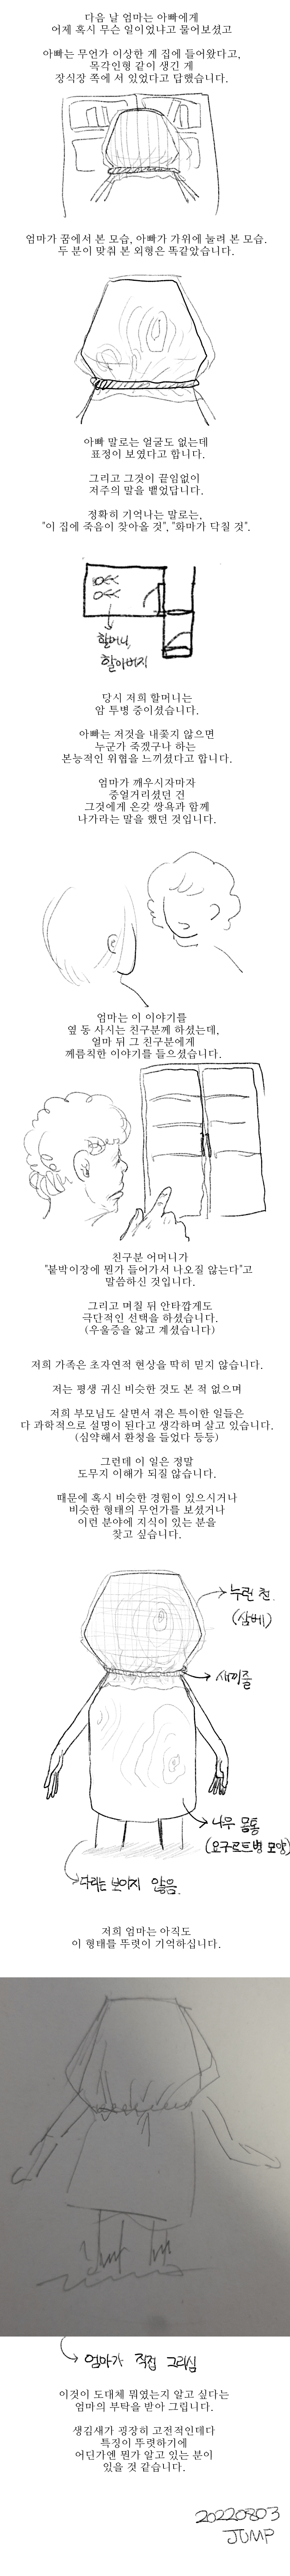 다음 날 엄마는 아빠에게
어제 혹시 무슨 일이었냐고 물어보셨고
아빠는 무언가 이상한 게 집에 들어왔다고,
목각인형 같이 생긴 게
장식장 쪽에 서 있었다고 답했습니다.
엄마가 꿈에서 본 모습, 아빠가 가위에 눌려 본 모습.
두 분이 맞춰 본 외형은 똑같았습니다.
아빠 말로는 얼굴도 없는데
표정이 보였다고 합니다.
그리고 그것이 끝임없이
저주의 말을 뱉었답니다.
정확히 기억나는 말로는,
"이 집에 죽음이 찾아올 것", "화마가 닥칠 것".
할머니,
할아버지
당시 저희 할머니는
암 투병 중이셨습니다.
아빠는 저것을 내쫓지 않으면
누군가 죽겠구나 하는
본능적인 위협을 느끼셨다고 합니다.
엄마가 깨우시자마자
중얼거리셨던 건
그것에게 온갖 쌍욕과 함께
나가라는 말을 했던 것입니다.
엄마는 이 이야기를
옆 동 사시는 친구분께 하셨는데,
얼마 뒤 그 친구분에게
께름칙한 이야기를 들으셨습니다.
친구분 어머니가
"붙박이장에 뭔가 들어가서 나오질 않는다"고
말씀하신 것입니다.
그리고 며칠 뒤 안타깝게도
극단적인 선택을 하셨습니다.
(우울증을 앓고 계셨습니다)
저희 가족은 초자연적 현상을 딱히 믿지 않습니다.
저는 평생 귀신 비슷한 것도 본 적 없으며
저희 부모님도 살면서 겪은 특이한 일들은
다 과학적으로 설명이 된다고 생각하며 살고 있습니다.
(심약해서 환청을 들었다 등등)
그런데 이 일은 정말
도무지 이해가 되질 않습니다.
때문에 혹시 비슷한 경험이 있으시거나
비슷한 형태의 무언가를 보셨거나
이런 분야에 지식이 있는 분을
찾고 싶습니다.
누런 천
(삼베)
새끼줄
나무 몸통
(요구르트병 모양)
다리는 보이지 않음.
저희 엄마는 아직도
이 형태를 뚜렷이 기억하십니다.
엄마가 직접 그리심
이것이 도대체 뭐였는지 알고 싶다는
엄마의 부탁을 받아 그립니다.
생김새가 굉장히 고전적인데다
특징이 뚜렷하기에
어딘가엔 뭔가 알고 있는 분이
있을 것 같습니다.
20220803
JUMP